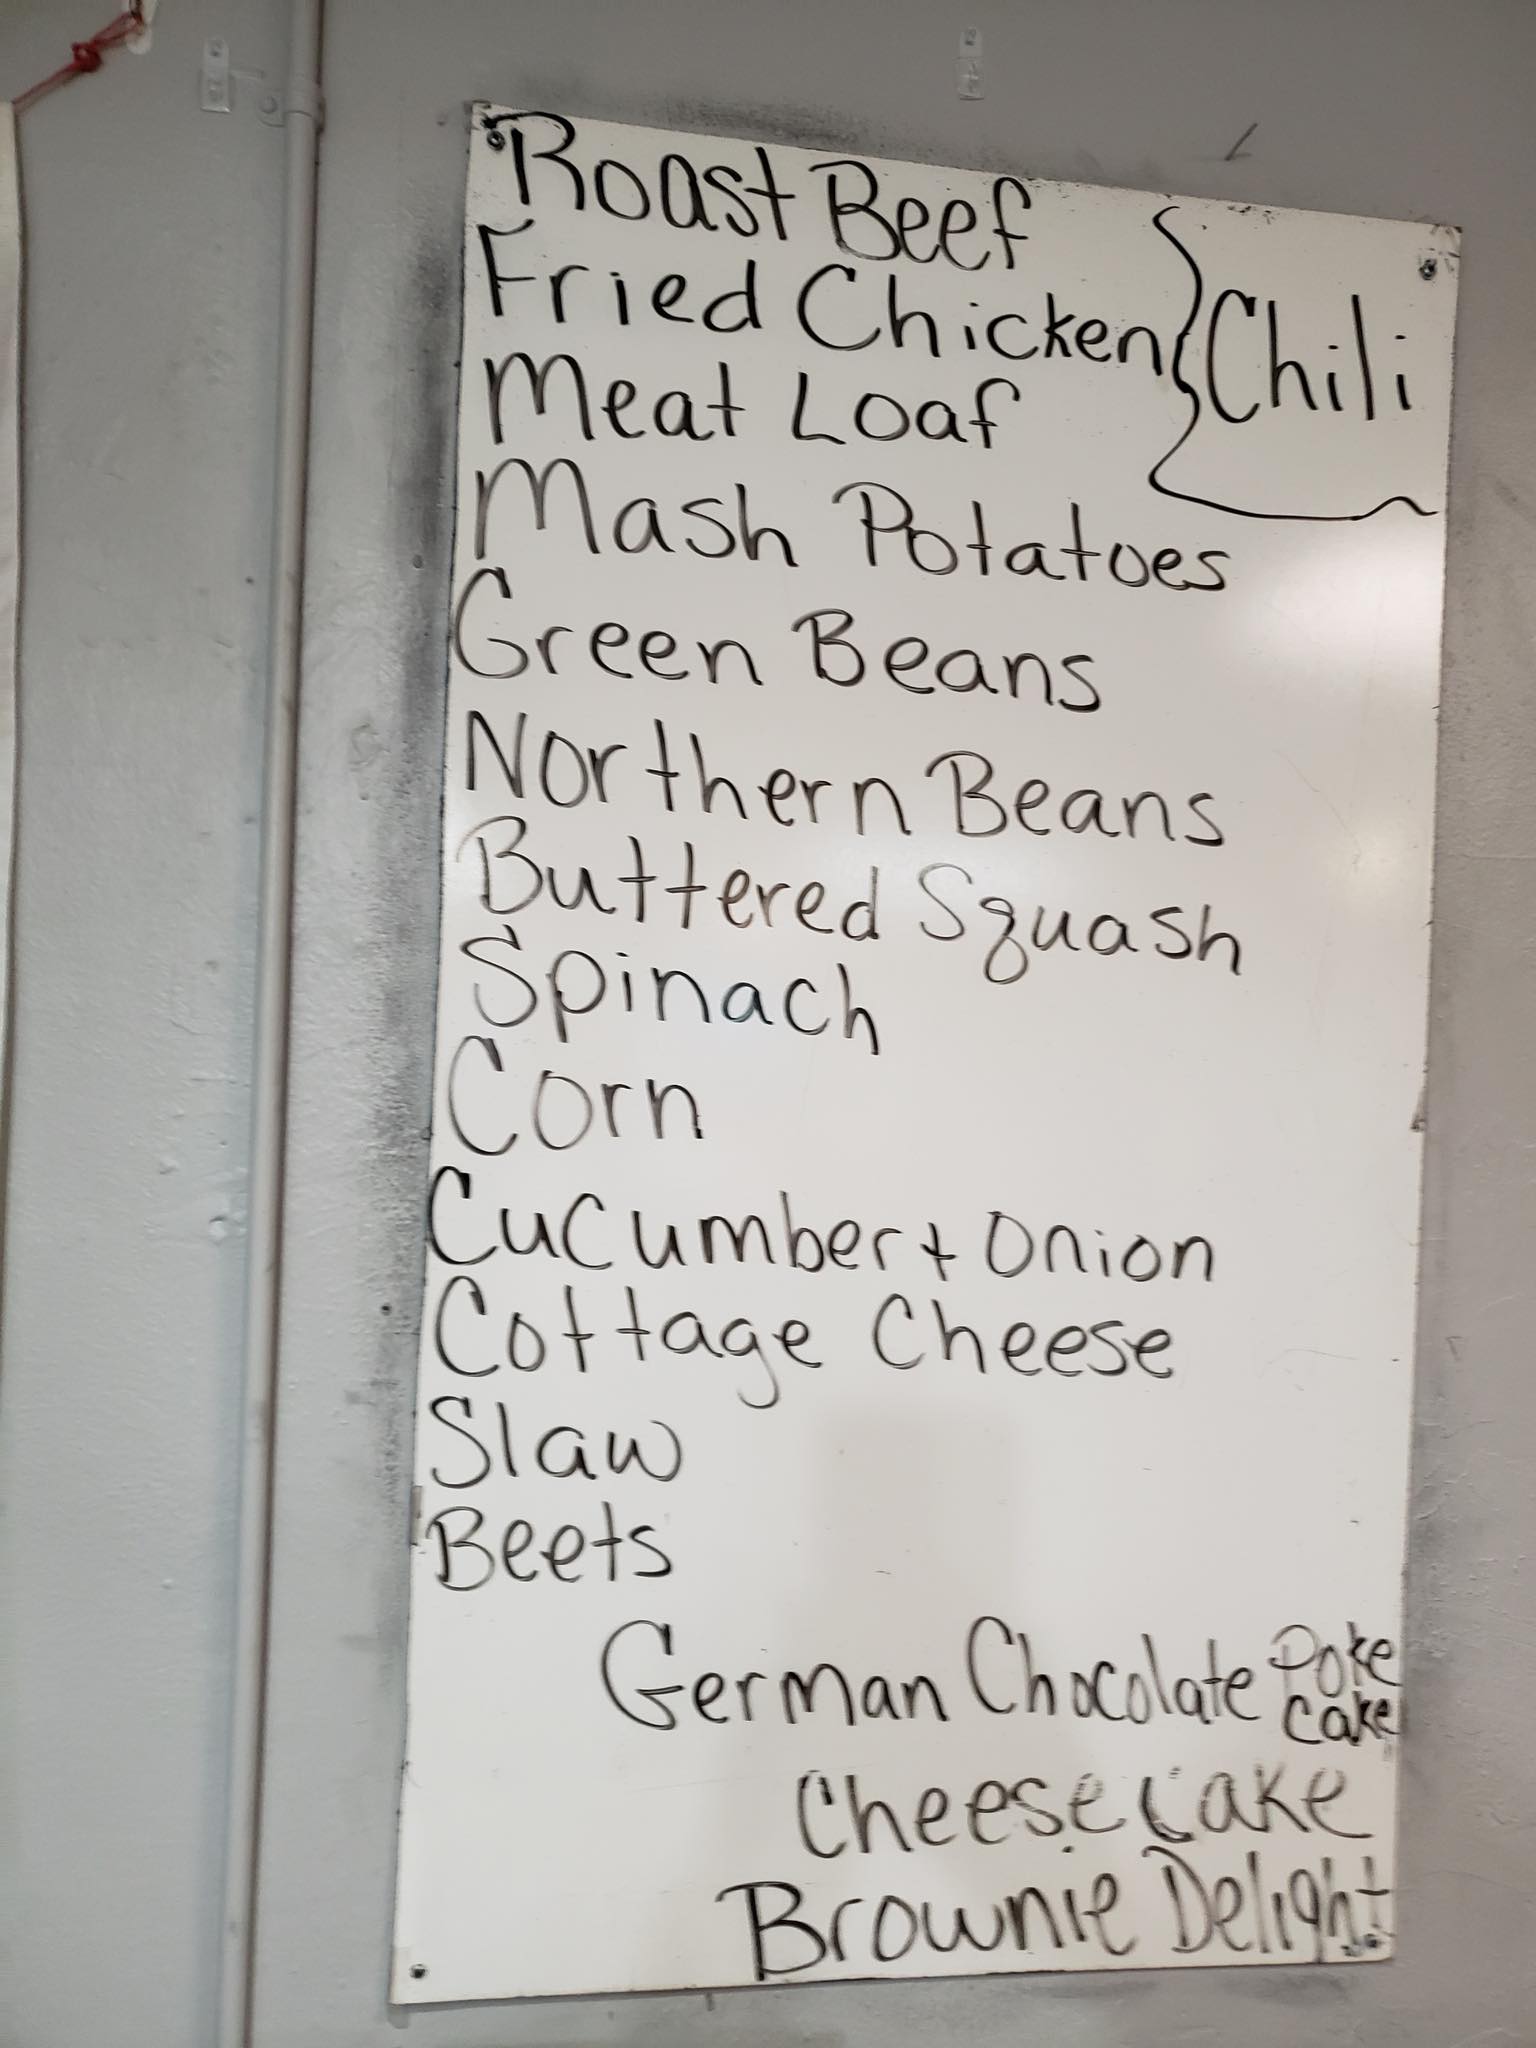 Roast Beef
Fried Chicken
Chili
Meat Loaf
Mash Potatoes
Green Beans
Northern Beans
Buttered Squash
Spinach
Corn
Cucumber + Onion
Cottage Cheese
Slaw
Beets
German Chocolate Poke
Cake
Cheese Cake
Brownie Delight